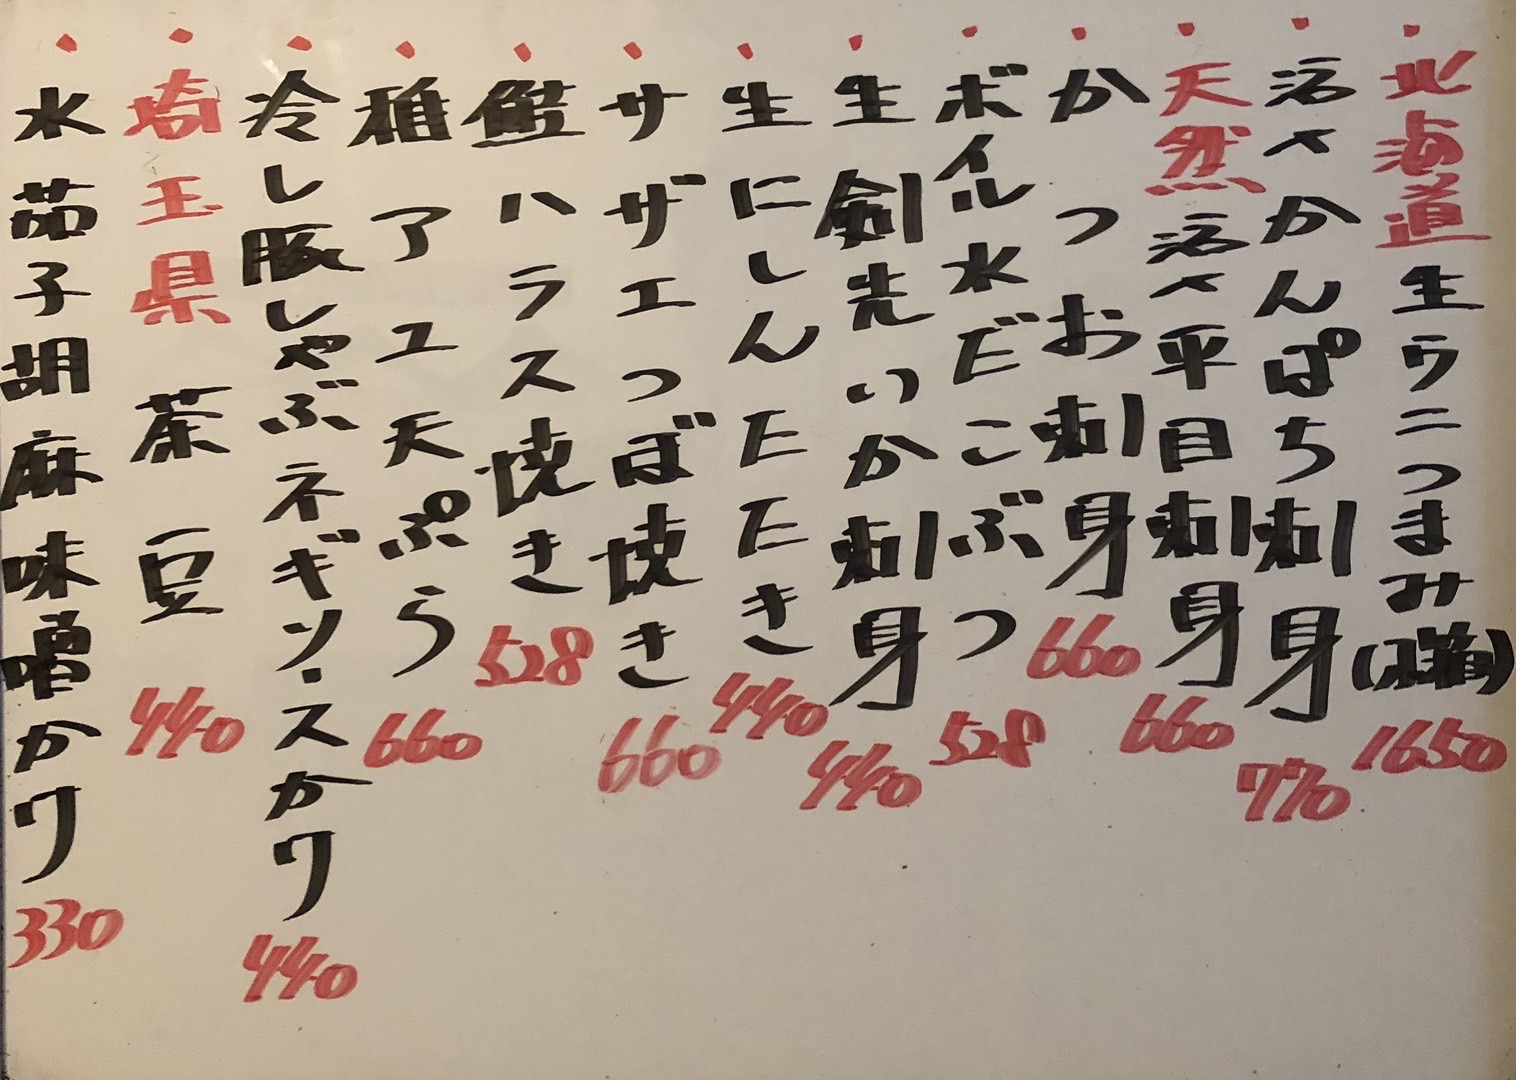 北海道生ウニつまみ(小箱) 1650
活〆かんぱち刺身 770
天然活〆平目刺身 660
かつお刺身 660
ボイル水だこぶつ 528
生剣先いか刺身 440
生にしんたたき 440
サザエつぼ焼き 660
鮭ハラス焼き 528
稚アユ天ぷら 660
冷し豚しゃぶネギソースかけ 440
埼玉県 茶豆 440
水茄子胡麻味噌かけ 330